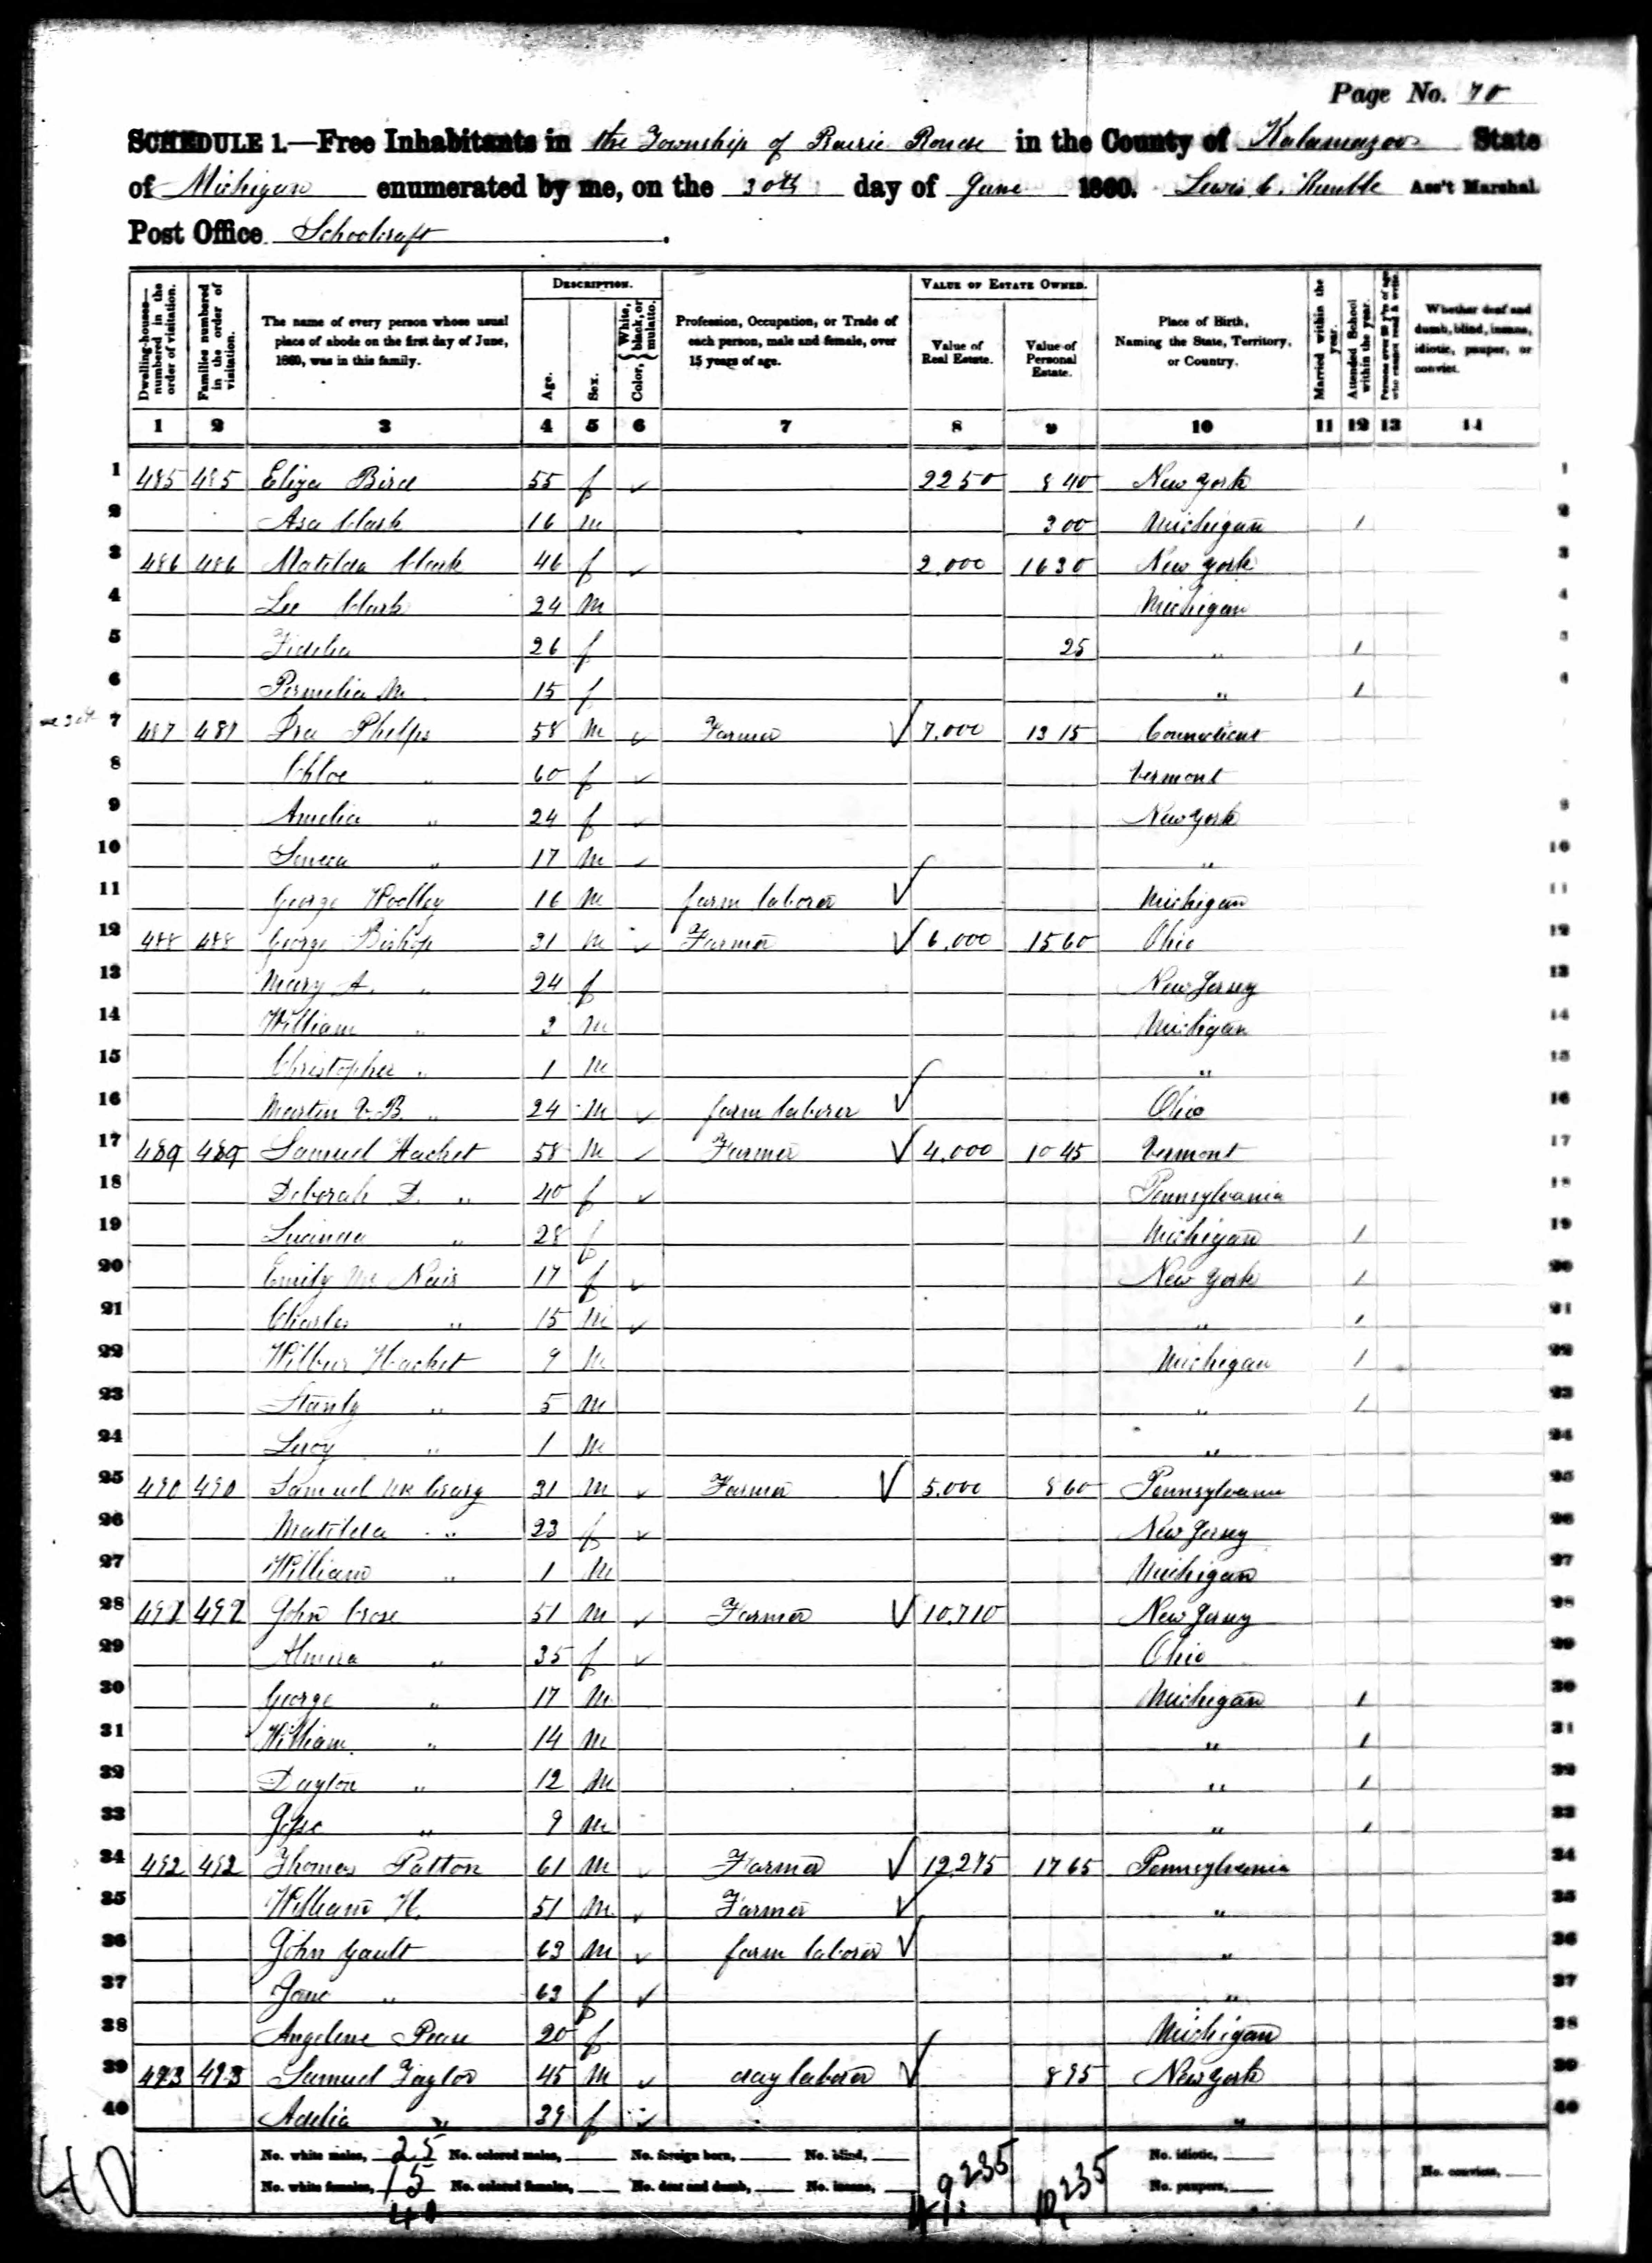 Page No. 70
SCHEDULE 1.—Free Inhabitants in the Township of Prairie Ronde in the County of Kalamazoo State
of Michigan enumerated by me, on the 30th day of June 1860. Lewis C. Kimble Ass't Marshal.
Post Office Schoolcraft.
Dwelling-houses—numbered in the order of visitation. Families numbered in the order of visitation. The name of every person whose usual place of abode on the first day of June, 1860, was in this family. DESCRIPTION. Age. Sex. Color, { White, black, or mulatto. Profession, Occupation, or Trade of each person, male and female, over 15 years of age. VALUE OF ESTATE OWNED. Value of Real Estate. Value of Personal Estate. Place of Birth, Naming the State, Territory, or Country. Married within the year. Attended School within the year. Persons over 20 y'rs of age who cannot read & write. Whether deaf and dumb, blind, insane, idiotic, pauper, or convict.
1 2 3 4 5 6 7 8 9 10 11 12 13 14
1 485 485 Eliza Bird 55 f 2250 840 New York 1
2 Asa Clark 16 m 300 Michigan / 2
3 486 486 Matilda Clark 46 f 2,000 1630 New York 3
4 Lee Clark 24 m Michigan 4
5 Fidelia 26 f 25 " / 5
6 Permelia M. 15 f " / 6
7 487 487 Ira Phelps 58 m Farmer 7,000 1315 Connecticut
8 Chloe " 60 f Vermont
9 Amelia " 24 f New York 9
10 Seneca " 17 m " 10
11 George Woolley 16 m farm laborer Michigan 11
12 488 488 George Bishop 31 m Farmer 6,000 1560 Ohio 12
13 Mary A. " 24 f New Jersey 13
14 William " 3 m Michigan 14
15 Christopher " 1 m " 15
16 Martin V.B. " 24 m farm laborer Ohio 16
17 489 489 Samuel Hacket 58 m Farmer 4,000 1045 Vermont 17
18 Deborah D. " 40 f Pennsylvania 18
19 Lucinda " 28 f Michigan / 19
20 Emily Mc Nair 17 f New York / 20
21 Charles " 15 m " / 21
22 Wilbur Hacket 9 m Michigan / 22
23 Stanly " 5 m " / 23
24 Leroy " 1 m " 24
25 490 490 Samuel McCrary 31 m Farmer 5,000 860 Pennsylvania 25
26 Matilda " 23 f New Jersey 26
27 William " 1 m Michigan 27
28 491 491 John Crose 51 m Farmer 10,710 New Jersey 28
29 Almira " 35 f Ohio 29
30 George " 17 m Michigan / 30
31 William " 14 m " / 31
32 Dayton " 12 m " / 32
33 Jesse " 9 m " / 33
34 492 492 Thomas Patton 61 m Farmer 12,275 1765 Pennsylvania 34
35 William H. 51 m Farmer " 35
36 John Gault 63 m farm laborer " 36
37 Jane " 63 f " 37
38 Angeline Pease 20 f Michigan 38
39 493 493 Samuel Taylor 45 m day laborer 895 New York 39
40 Adelia " 39 f " 40
No. white males, 25 No. colored males, No. foreign born, No. blind, 49,235 10,235 No. idiotic,
No. white females, 15 No. colored females, No. deaf and dumb, No. insane, No. paupers, No. convicts,
40
40